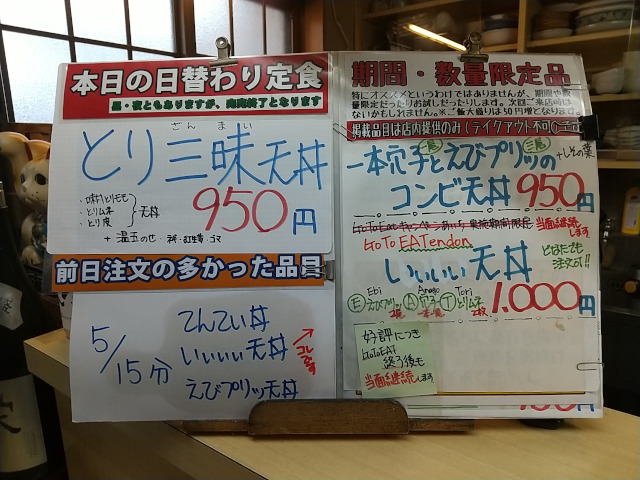 本日の日替わり定食
昼・夜ともありますが、完売終了となります
ざんまい
とり三昧天丼
・味付とりもも
・とりムネ
・とり皮
天丼
950円
+温玉のせ・
前日注文の多かった品目
5/15分
てんてい丼
いいぃい天丼
えびプリッ天丼
コレです
期間・数量限定品
特にオススメというわけではありませんが、期間や数
量限定だったりお試しだったりします。次回ご来店時は
ないかもしれません。※ご飯大盛りは50円増となります。
掲載品目は店内提供のみ(テイクアウト不可)
一本穴子とえびプリッの
+しその葉
コンビ天丼 950円
GoToEatキャンペーンあいち 実施期間限定
当面継続します
GoTo EATendon
いいぃい天丼
どなたでも
注文可!!
Ebi Anago Tori
Eえびプリッ Aアナゴ Tとりムネ
1.000円
好評につき
GoToEAT
終了後も
当面継続します